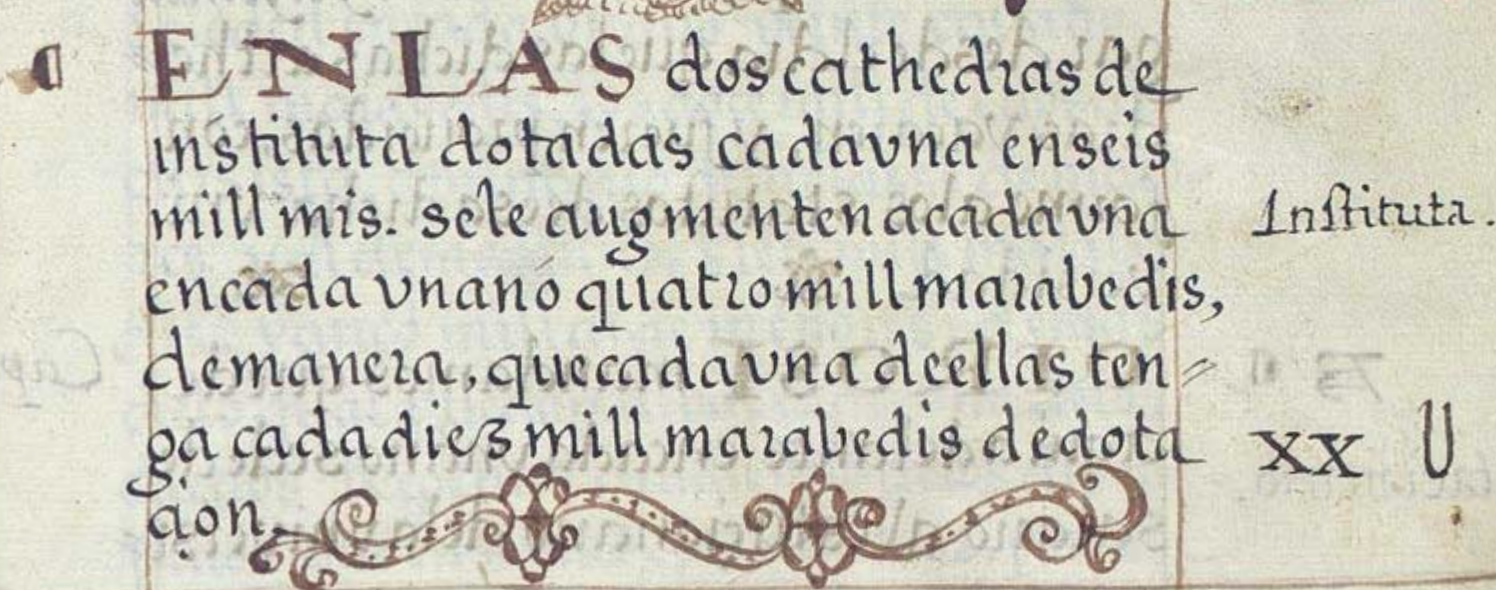 ENLAS dos cathedras de
instituta dotadas cada vna en seis
mill mrs. se le augmenten a cada vna
Instituta.
en cada vn año quatro mill marabedis,
de manera, que cada vna de ellas ten=
ga cada diez mill marabedis de dota
XX U
çion.